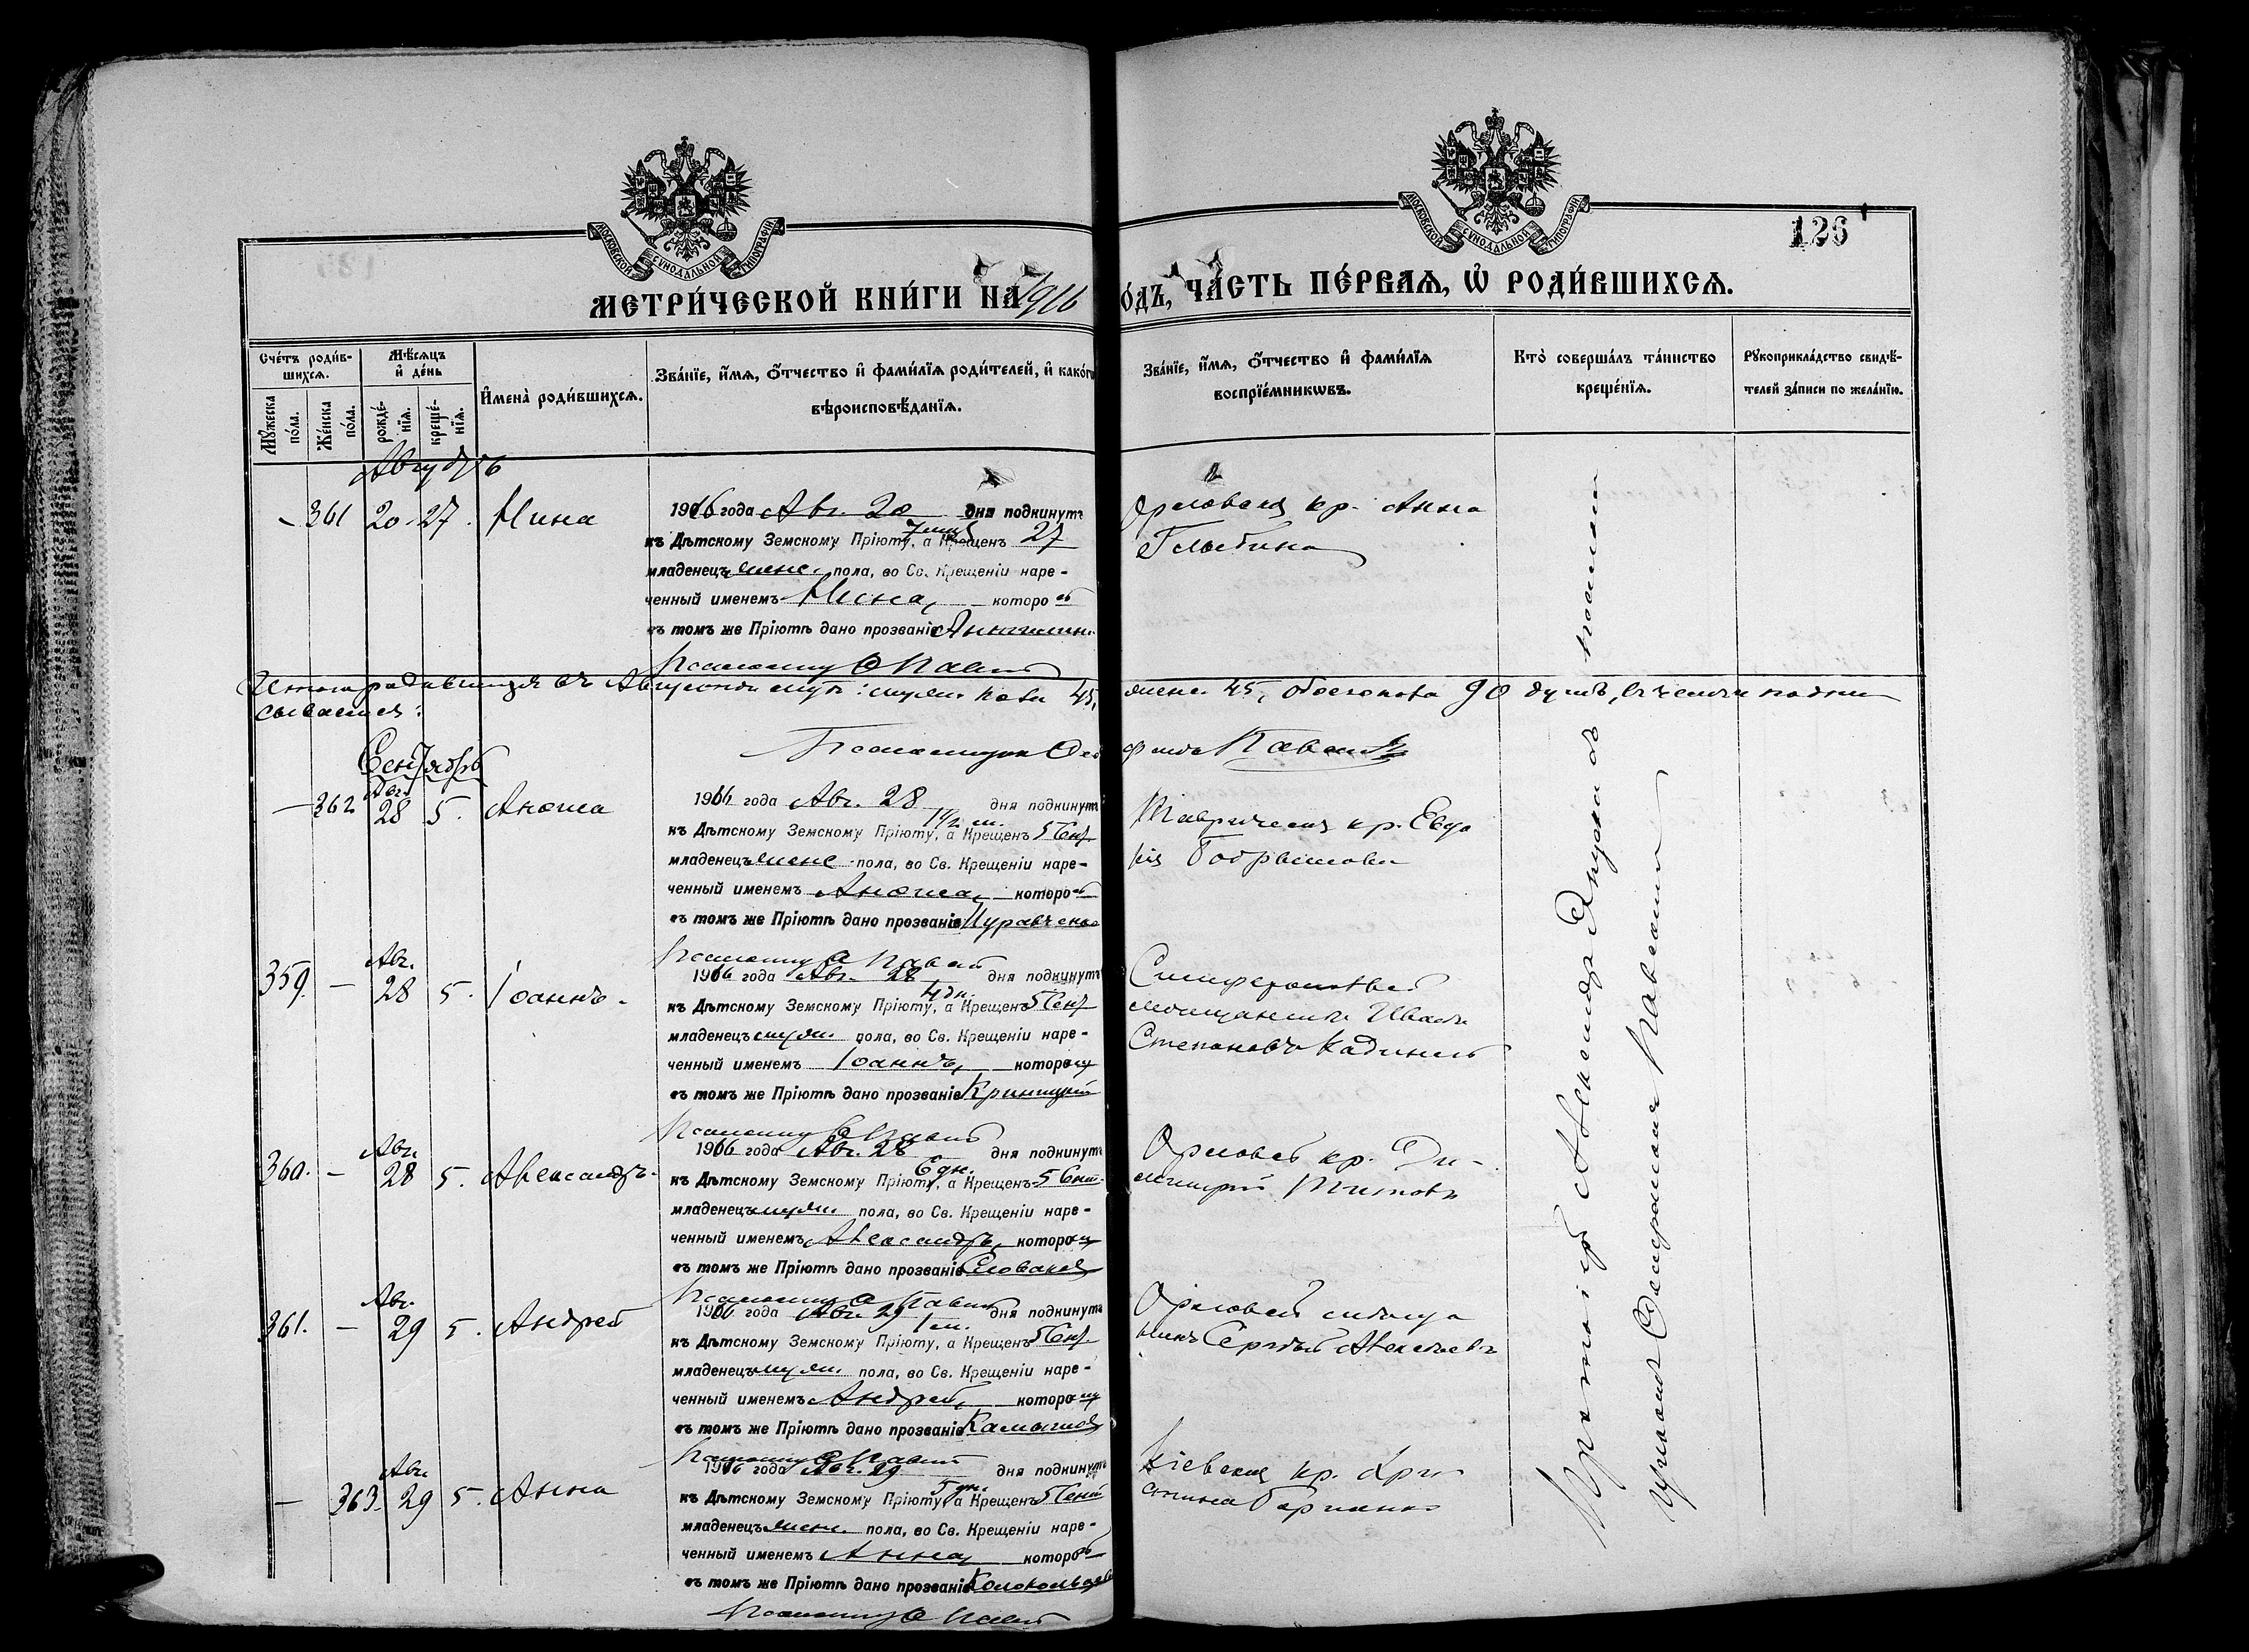 МОСКОВСКОЙ СѴНОДАЛЬНОЙ ТИПОГРАФІИ
МОСКОВСКОЙ СѴНОДАЛЬНОЙ ТИПОГРАФІИ
126
МЕТРИ́ЧЕСКОЙ КНИ́ГИ НА 1916
ОДЪ, ЧА́СТЬ ПЕ́РВАЯ, Ѽ РОДИ́ВШИХСЯ.
Сче́тъ роди́в-
шихся.
Мѣ́сяцъ
и҆ де́нь
Мꙋ́жеска
по́ла.
Же́нска
по́ла.
рожде́-
нїя.
креще́-
нїя.
И҆мена̀ роди́вшихся.
Зва́нїе, и҆́мя, ѻ҆́тчество и҆ фами́лїя роди́телей, и҆ како́гѡ
вѣроисповѣ́данїя.
Зва́нїе, и҆́мя, ѻ҆́тчество и҆ фами́лїя
воспрїе́мникѡвъ.
Кто̀ соверша́лъ та́инство
креще́нїя.
Рꙋкоприкла́дство свидѣ́-
телей за́писи по жела́нїю.
Августъ
361 20 27. Нина
1916 года Авг. 20 дня подкинутъ
къ Дѣтскому Земскому Пріюту, а Крещенъ 27
младенецъ женс. пола, во Св. Крещеніи наре-
ченный именемъ Нина, которой
въ томъ же Пріютѣ дано прозваніе
Орловская кр. Анна
Итого родившихся въ Августѣ муж. пола 45,
женс. 45, обоего пола 90 душъ, въ чемъ и подпи
сываемся:
Сентябрь
— 362 Авг. 28 5.
1916 года Авг. 28 дня подкинутъ
къ Дѣтскому Земскому Пріюту, а Крещенъ 5 Сент.
младенецъ женс. пола, во Св. Крещеніи наре-
ченный именемъ которой
въ томъ же Пріютѣ дано прозваніе
Таврическая кр. Евдо
кія
359. — Авг. 28 5. Іоаннъ.
1916 года Авг. 28 дня подкинутъ
4 дн.
къ Дѣтскому Земскому Пріюту, а Крещенъ 5 Сент.
младенецъ муж. пола, во Св. Крещеніи наре-
ченный именемъ Іоаннъ, которому
въ томъ же Пріютѣ дано прозваніе Криницкій
Симферопольскій
мѣщанинъ Иванъ
Степановъ
360. — Авг. 28 5. Александръ.
1916 года Авг. 28 дня подкинутъ
6 дн.
къ Дѣтскому Земскому Пріюту, а Крещенъ 5 Сент.
младенецъ муж. пола, во Св. Крещеніи наре-
ченный именемъ Александръ, которому
въ томъ же Пріютѣ дано прозваніе
Орловскій кр. Ди-
митрій Титовъ
361. — Авг. 29 5. Андрей
1916 года Авг. 29 дня подкинутъ
1 м.
къ Дѣтскому Земскому Пріюту, а Крещенъ 5 Сент.
младенецъ муж. пола, во Св. Крещеніи наре-
ченный именемъ Андрей, которому
въ томъ же Пріютѣ дано прозваніе
Орловскій мѣща
нинъ Сергѣй Алексѣевъ
— 363. Авг. 29 5. Анна
1916 года Авг. 29 дня подкинутъ
5 дн.
къ Дѣтскому Земскому Пріюту, а Крещенъ 5 Сент.
младенецъ женс. пола, во Св. Крещеніи наре-
ченный именемъ Анна, которой
въ томъ же Пріютѣ дано прозваніе
Кіевская кр. Хри
стина
Протоіерей Александръ съ